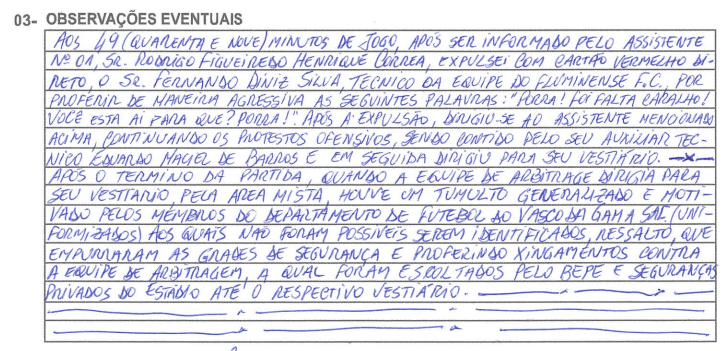 03- OBSERVAÇÕES EVENTUAIS
AOS 49 (QUARENTA E NOVE) MINUTOS DE JOGO, APÓS SER INFORMADO PELO ASSISTENTE
Nº 01, SR. RODRIGO FIGUEIREDO HENRIQUE CORREA, EXPULSEI COM CARTÃO VERMELHO DI-
RETO, O SR. FERNANDO DINIZ SILVA, TECNICO DA EQUIPE DO FLUMINENSE F.C., POR
PROFERIR DE MANEIRA AGRESSIVA AS SEGUINTES PALAVRAS: "PORRA! FOI FALTA CARALHO!
VOCÊ ESTA AI PARA QUE? PORRA!". APÓS A EXPULSÃO, DIRIGIU-SE AO ASSISTENTE MENCIONADO
ACIMA, CONTINUANDO OS PROTESTOS OFENSIVOS, SENDO CONTIDO PELO SEU AUXILIAR TEC-
NICO EDUARDO MACIEL DE BARROS E EM SEGUIDA DIRIGIU PARA SEU VESTIÁRIO.
APÓS O TERMINO DA PARTIDA, QUANDO A EQUIPE DE ARBITRAGE DIRIGIA PARA
SEU VESTIARIO, PELA AREA MISTA, HOUVE UM TUMULTO GENERALIZADO E MOTI-
VADO PELOS MEMBROS DO DEPARTAMENTO DE FUTEBOL DO VASCO DA GAMA SAF, (UNI-
FORMIZADOS) AOS QUAIS NÃO FORAM POSSÍVEIS SEREM IDENTIFICADOS, RESSALTO, QUE
EMPURRARAM AS GRADES DE SEGURANÇA E PROFERINDO XINGAMENTOS CONTRA
A EQUIPE DE ARBITRAGEM, A QUAL FORAM ESCOLTADOS PELO BEPE E SEGURANÇAS
PRIVADOS DO ESTÁDIO ATÉ O RESPECTIVO VESTIÁRIO.